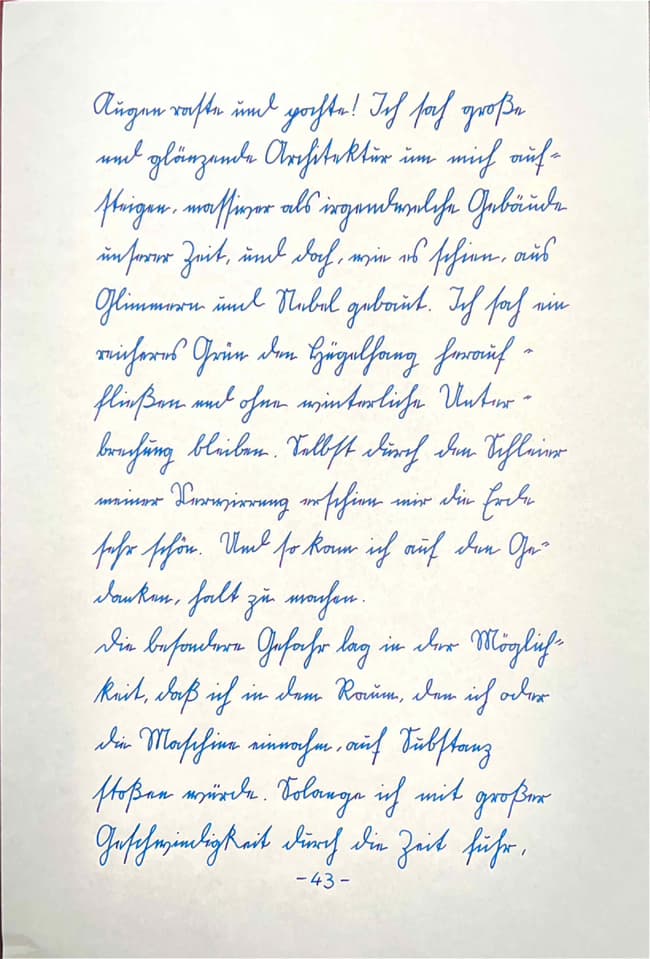 Augen raste und pochte! Ich sah große
und glänzende Architektur um mich auf=
steigen, massiver als irgendwelche Gebäude
unserer Zeit, und doch, wie es schien, aus
Glimmern und Nebel gebaut. Ich sah ein
reicheres Grün den Hügelhang herauf-
fließen und ohne winterliche Unter-
brechung bleiben. Selbst durch den Schleier
meiner Verwirrung erschien mir die Erde
sehr schön. Und so kam ich auf den Ge=
danken, halt zu machen.
Die besondere Gefahr lag in der Möglich=
keit, daß ich in dem Raum, den ich oder
die Maschine einnahm, auf Substanz
stoßen würde. Solange ich mit großer
Geschwindigkeit durch die Zeit fuhr,
-43-